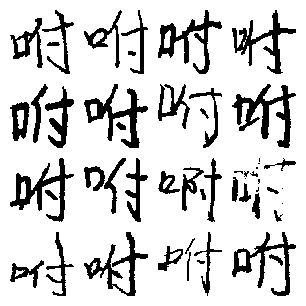 咐咐咐咐
咐咐咐咐
咐咐咐咐
咐咐咐咐